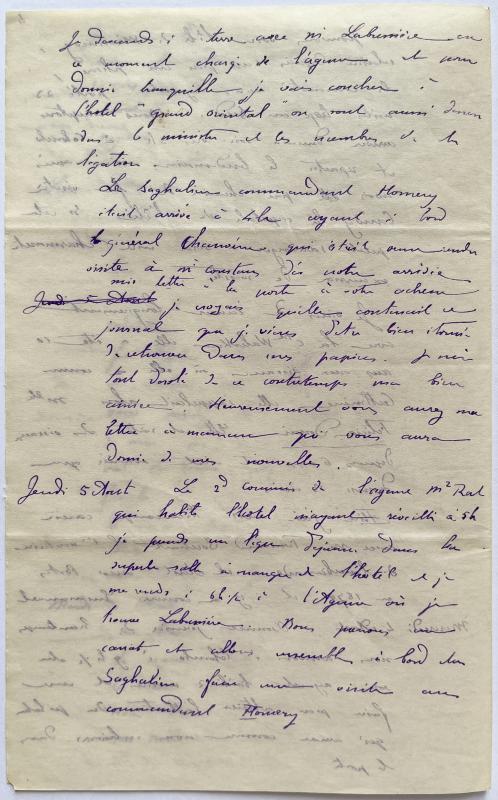 Je descends à terre avec Mr Labussière en
ce moment chargé de l'agence et pour
dormir tranquille je vais coucher à
l'hôtel "grand oriental" où sont aussi descendus
le ministre et les membres de la
légation
Le Saghalien commandant Homery
était arrivé à 4h ayant à bord
le général Chanoine qui était venu rendre
visite à Mr Constans dès notre arrivée
mis lettre à la poste à votre adresse
Jeudi 5 Août je croyais qu'elle contenait ce
journal que je viens d'être bien étonné
de retrouver dans mes papiers. Je suis
tout désolé de ce contretemps ma bien
aimée. Heureusement vous aurez ma
lettre à maman qui vous aura
donné de mes nouvelles.
Jeudi 5 Août Le 2d commis de l'agence Mr Rat
qui habite l'hôtel m'ayant réveillé à 5h
je prends un léger déjeuner dans la
superbe salle à manger de l'hôtel et je
me rends à 6h½ à l'Agence où je
trouve Labussière Nous prenons un
canot, et allons ensemble à bord du
Saghalien faire une visite au
commandant Homery